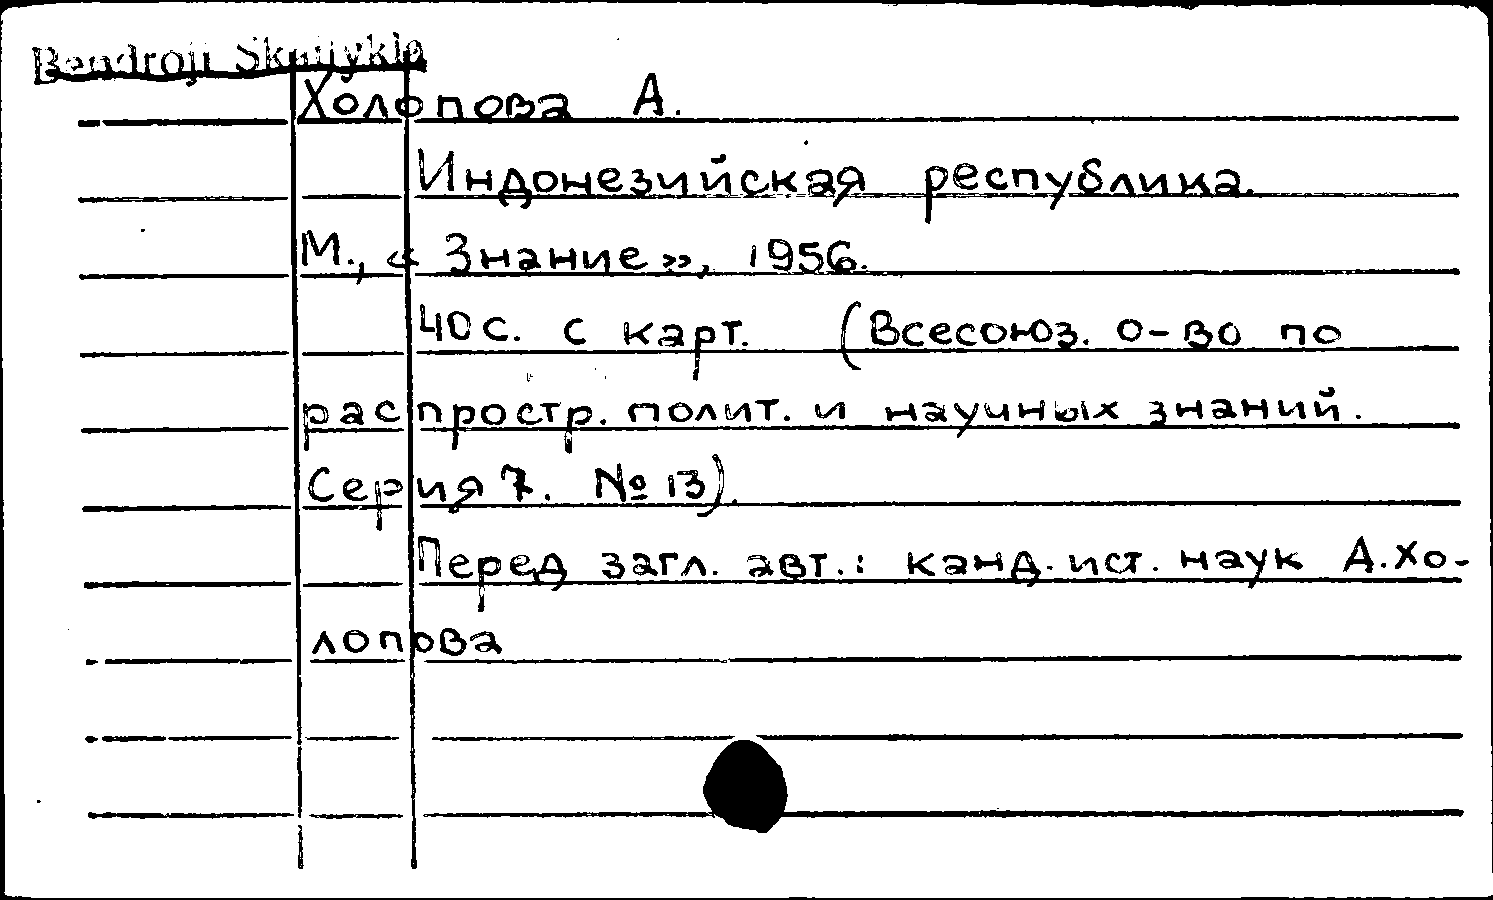 Bendroji Skaitykla
Холопова А.
Индонезийская республика.
М., « Знание », 1956.
40 с. с карт. (Всесоюз. о-во по
распростр. полит. и научных знаний.
Серия 7. № 13).
Перед загл. авт.: канд. ист. наук А. Хо-
лопова